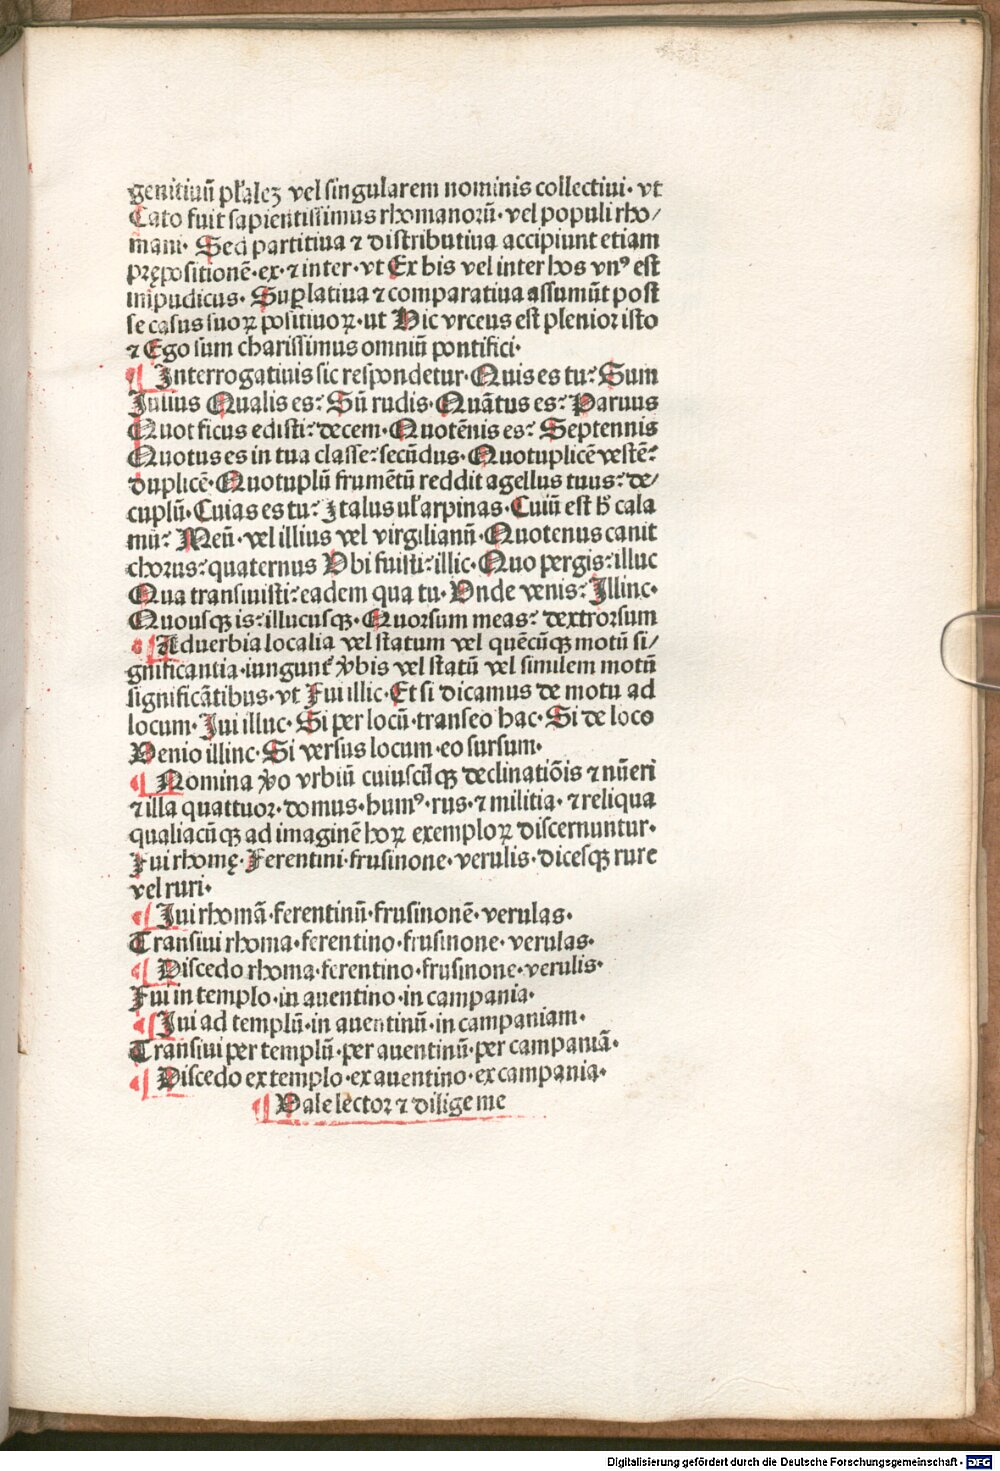 genitiuū pl'alez vel singularem nominis collectiui· vt
Cato fuit sapientissimus rhomanorū· vel populi rho/
mani· Sed partitiua ⁊ distributiua accipiunt etiam
prępositionē·ex·⁊ inter·vt Ex his vel inter hos vnꝰ est
impudicus· Suplatiua ⁊ comparatiua assumūt post
se casus suoꝝ positiuoꝝ·ut Hic vrceus est plenior isto
⁊ Ego sum charissimus omniū pontifici·
¶ Interrogatiuis sic respondetur· Quis es tu? Sum
Iulius Qualis es? Sū rudis· Quātus es? Paruus
Quot ficus edisti? decem· Quotēnis es? Septennis
Quotus es in tua classe? secūdus· Quotuplicē vestē?
duplicē· Quotuplū frumētū reddit agellus tuus? de/
cuplū· Cuias es tu? Italus ul' arpinas· Cuiū est h̄ cala
mū? Meū· vel illius vel virgilianū· Quotenus canit
chorus? quaternus Vbi fuisti? illic· Quo pergis? illuc
Qua transiuisti? eadem qua tu· Vnde venis? Illinc·
Quousqꝫ is? illucusqꝫ· Quorsum meas? dextrorsum
¶ Aduerbia localia vel statum vel quēcūqꝫ motū si/
gnificantia·iungunt' v̓bis vel statū vel similem motū
significātibus· vt Fui illic· Et si dicamus de motu ad
locum· Iui illuc· Si per locū·transeo hac· Si de loco
Venio illinc· Si versus locum·eo sursum·
¶ Nomina v̓o vrbiū cuiuscūqꝫ declinatiōis ⁊ nūeri
⁊ illa quattuor·domus·humꝰ·rus·⁊ militia· ⁊ reliqua
qualiacūqꝫ ad imaginē hoꝝ exemploꝝ discernuntur·
Fui rhomę· Ferentini·frusinone·verulis·dicesqꝫ rure
vel ruri·
¶ Iui rhomā·ferentinū·frusinonē·verulas·
Transiui rhoma·ferentino·frusinone·verulas·
¶ Discedo rhoma·ferentino·frusinone·verulis·
Fui in templo·in auentino·in campania·
¶ Iui ad templū·in auentinū·in campaniam·
Transiui per templū·per auentinū·per campaniā·
¶ Discedo ex templo·ex auentino·ex campania·
¶ Vale lector ⁊ dilige me
Digitalisierung gefördert durch die Deutsche Forschungsgemeinschaft - DFG